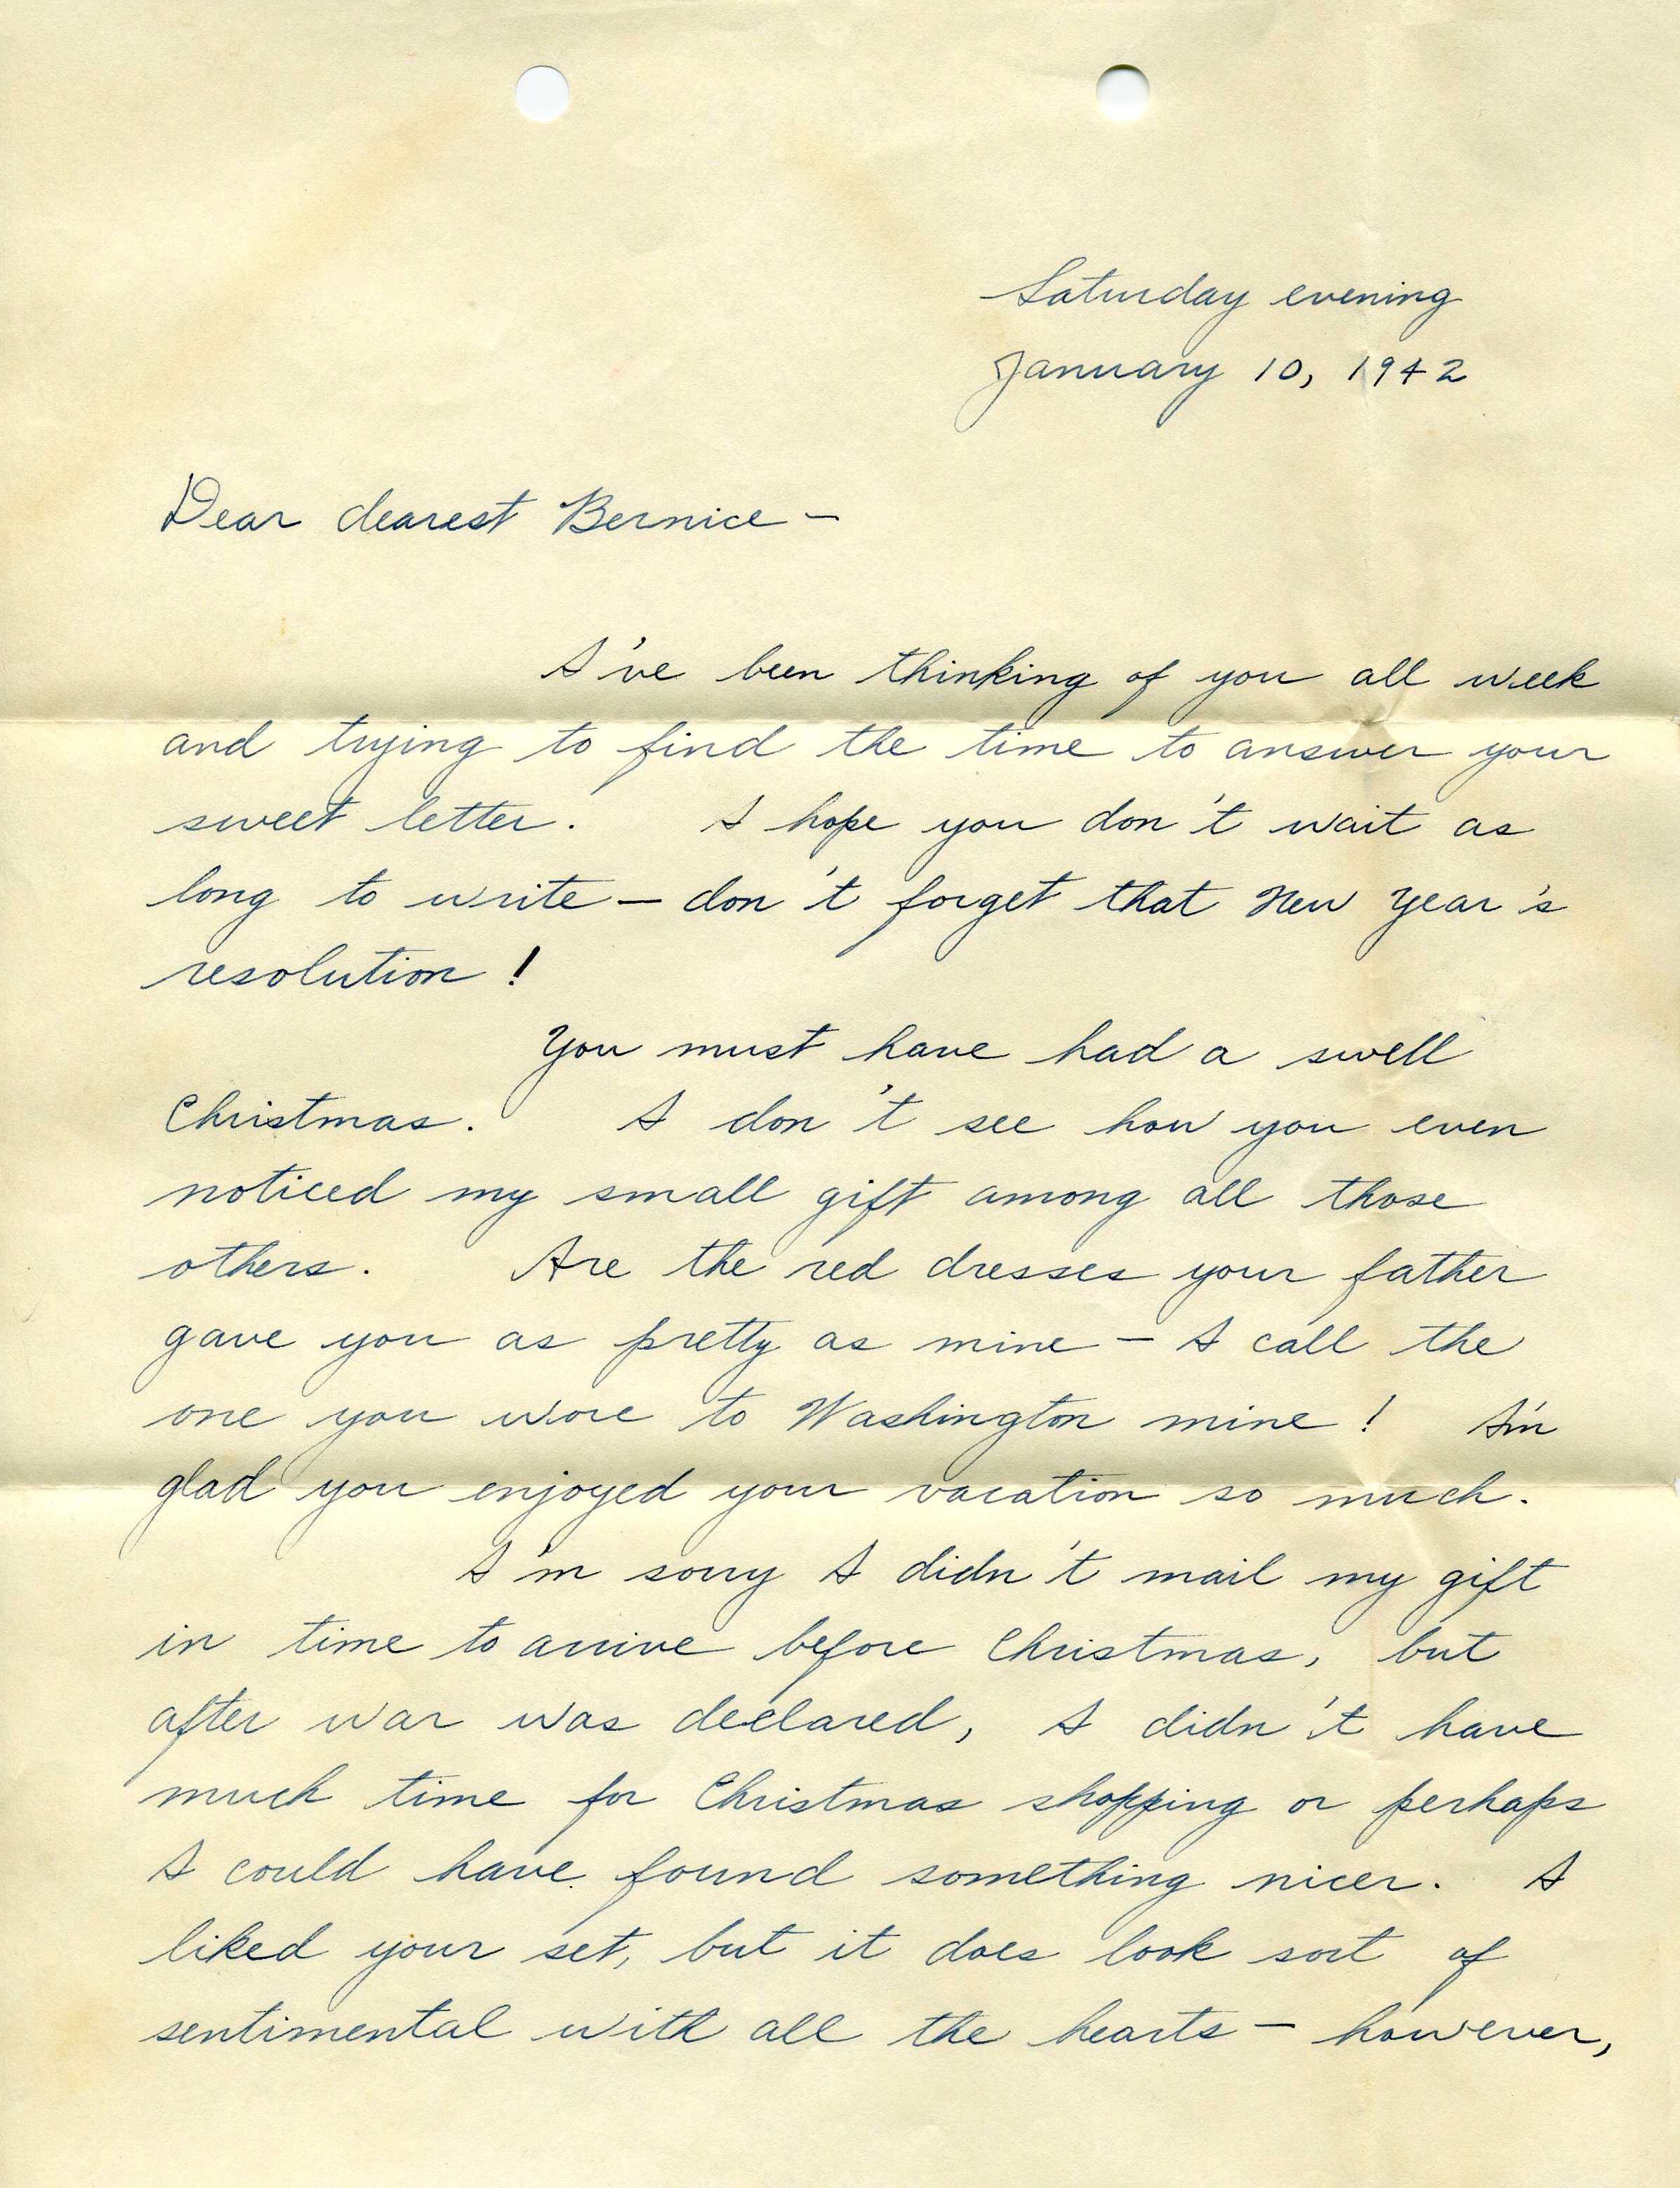 Saturday evening
January 10, 1942
Dear dearest Bernice —
I've been thinking of you all week
and trying to find the time to answer your
sweet letter. I hope you don't wait as
long to write — don't forget that New Year's
resolution!
You must have had a swell
Christmas. I don't see how you even
noticed my small gift among all those
others. Are the red dresses your father
gave you as pretty as mine — I call the
one you wore to Washington mine! I'm
glad you enjoyed your vacation so much.
I'm sorry I didn't mail my gift
in time to arrive before Christmas, but
after war was declared, I didn't have
much time for Christmas shopping or perhaps
I could have found something nicer. I
liked your set, but it does look sort of
sentimental with all the hearts — however,